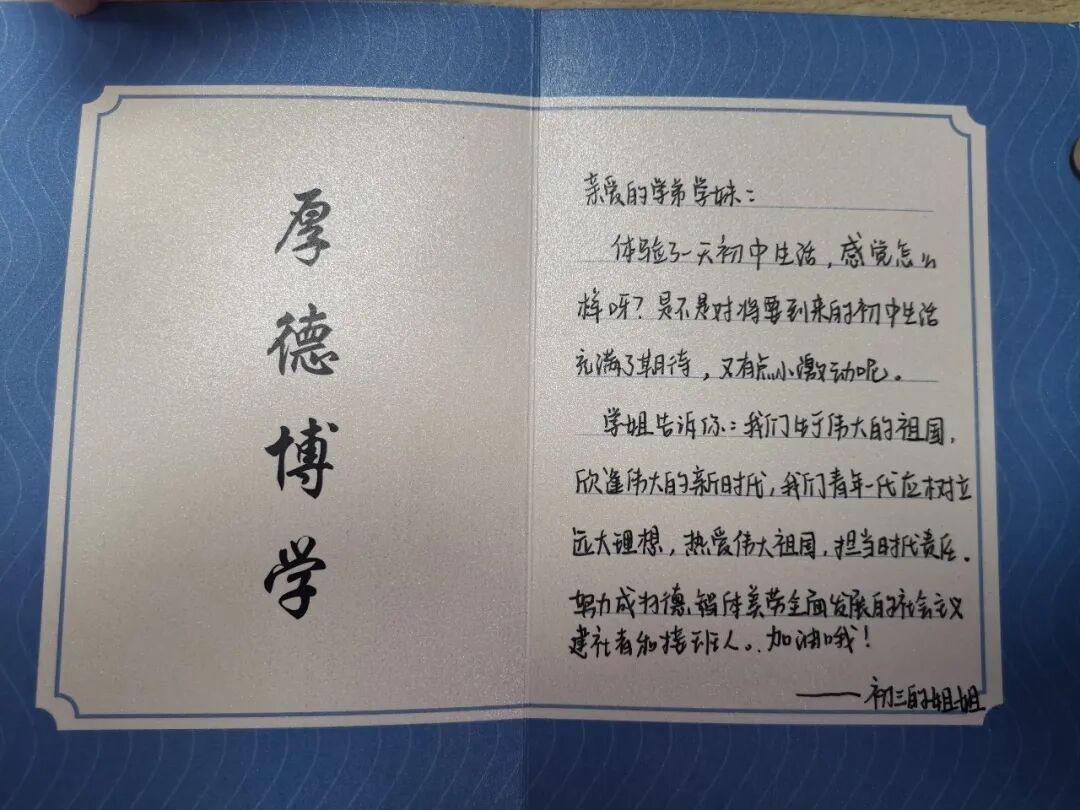 厚德博学
亲爱的学弟学妹：
体验了一天初中生活，感觉怎么
样呀？是不是对将要到来的初中生活
充满了期待，又有点小激动呢。
学姐告诉你：我们生于伟大的祖国，
欣逢伟大的新时代，我们青年一代应树立
远大理想，热爱伟大祖国，担当时代责任。
努力成为德、智体美劳全面发展的社会主义
建社者和接班人。加油哦！
——初三的姐姐